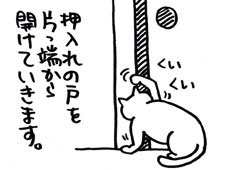 押入れの戸を
片っ端から
開けていきます。
くい
くい